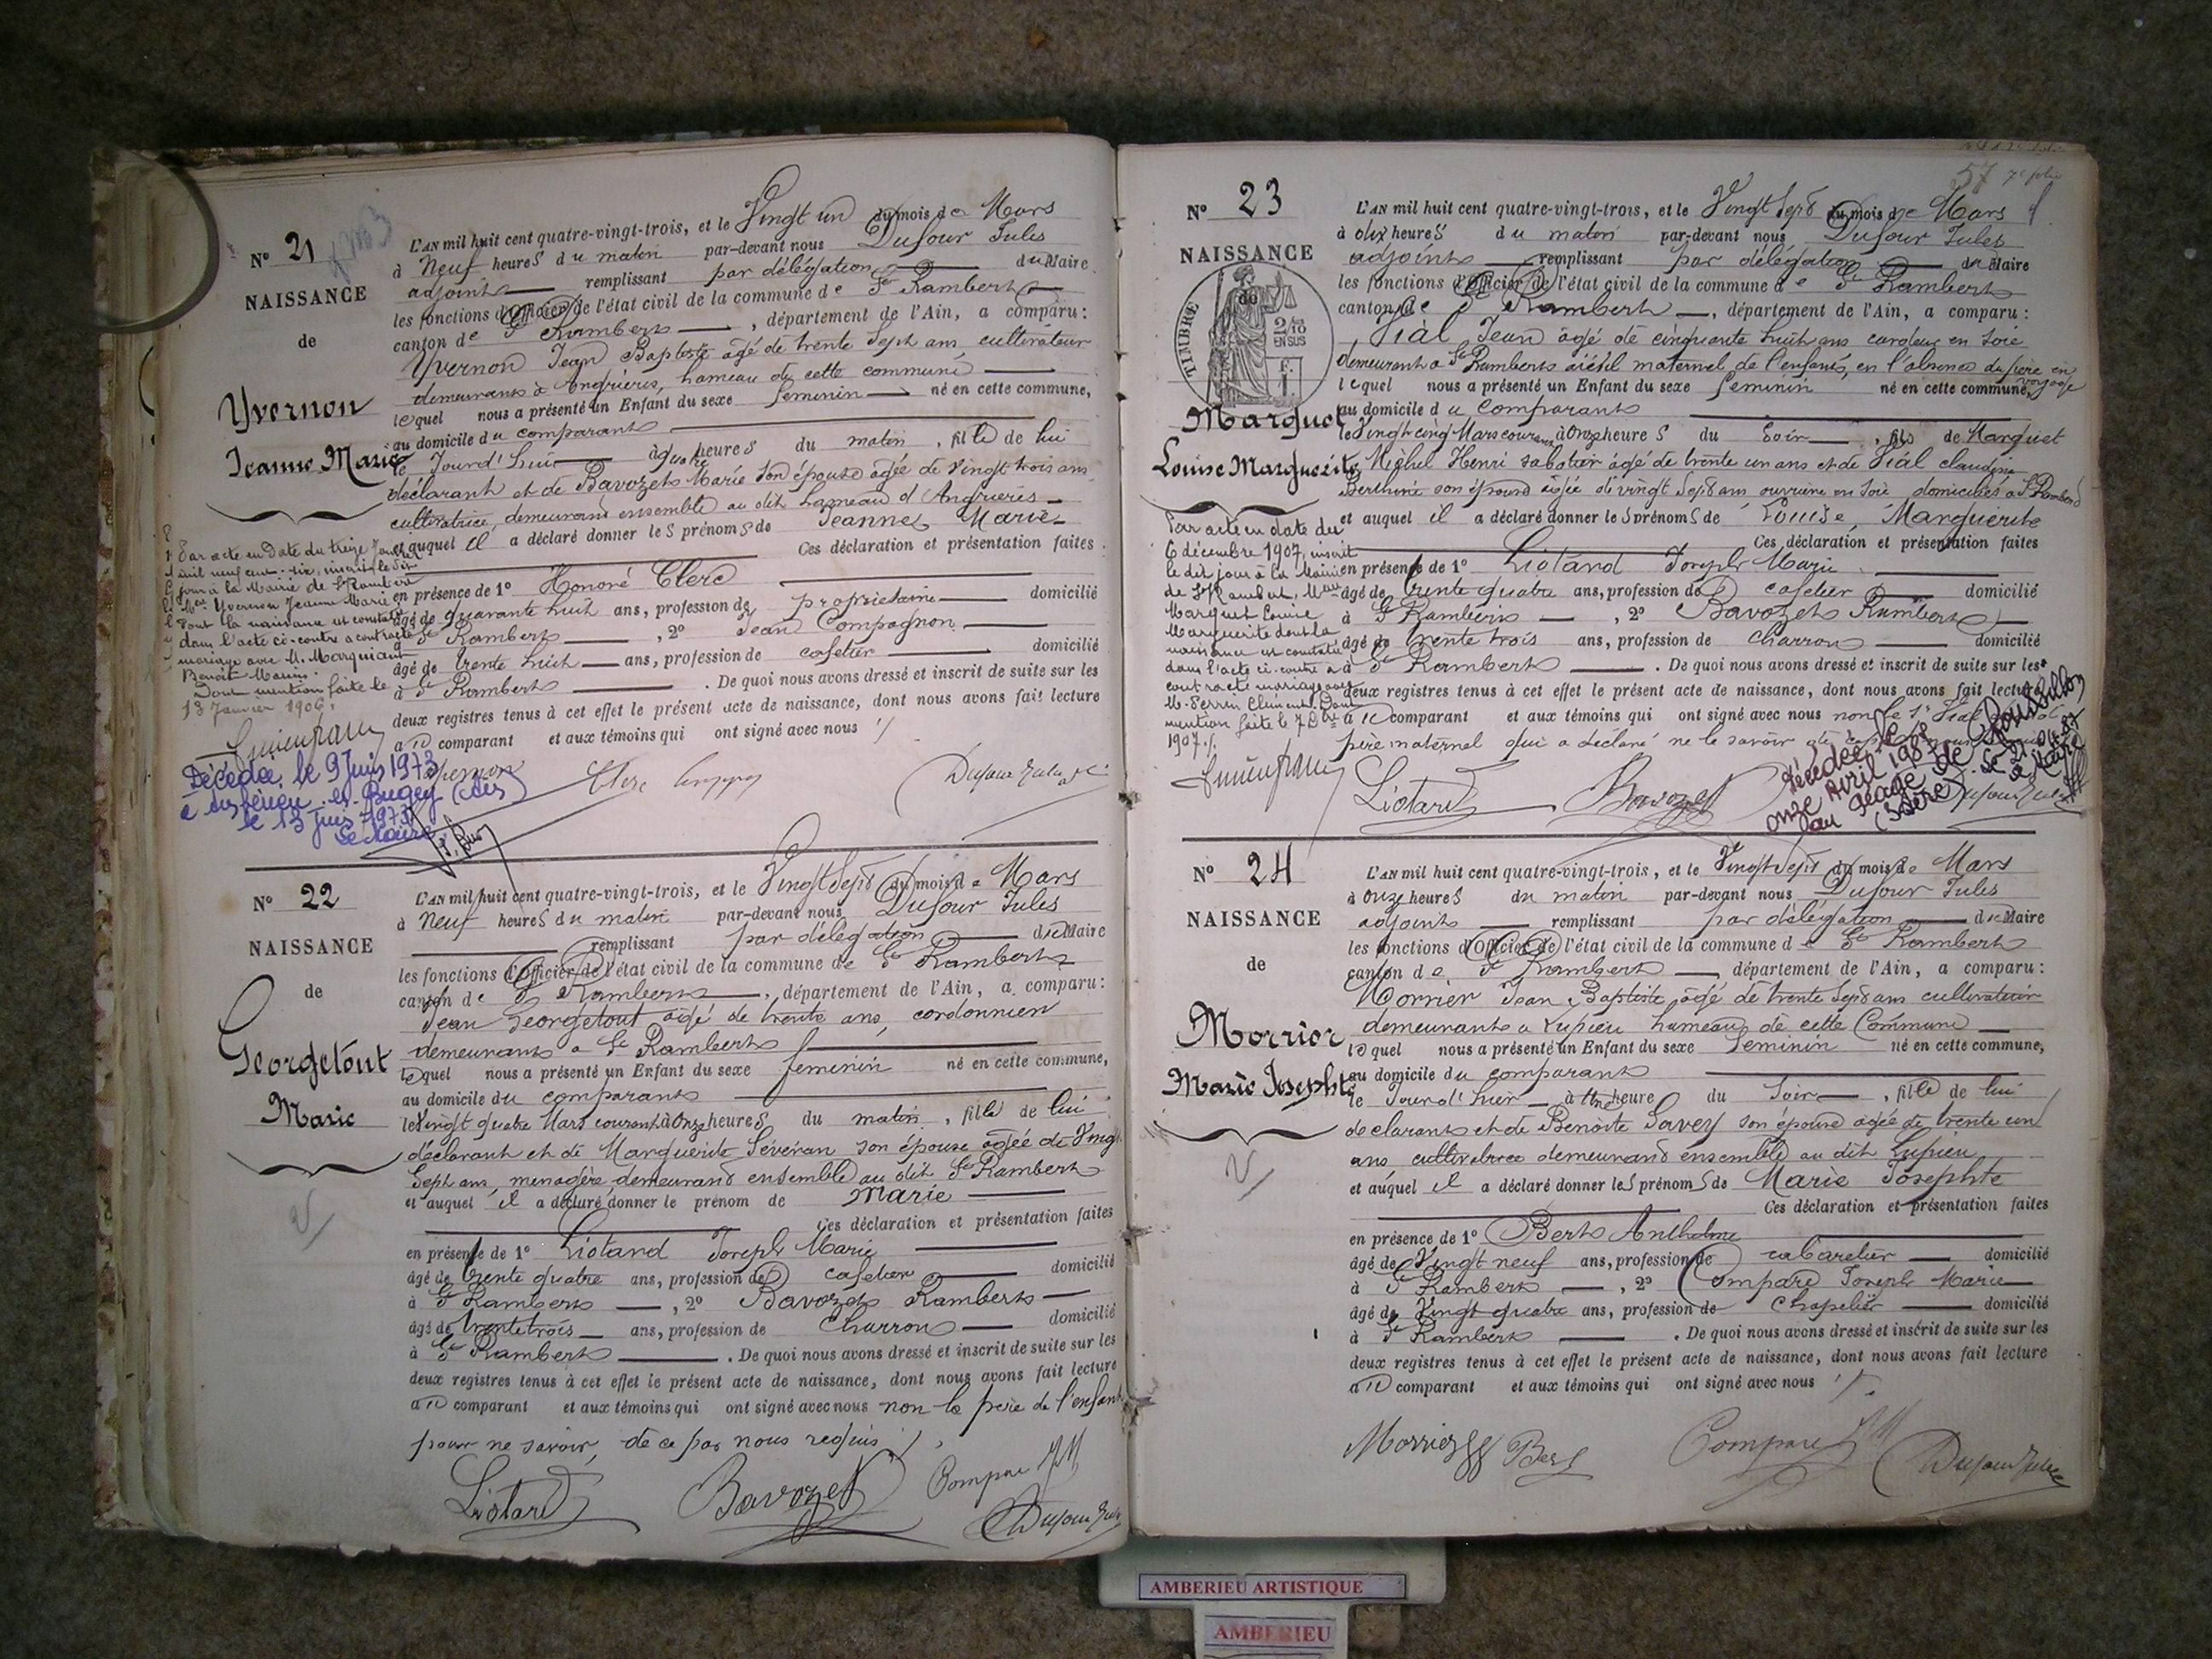 N° 21
NAISSANCE
de
Yvernon
Jeanne Marie
L'AN mil huit cent quatre-vingt-trois, et le Vingt un du mois de Mars
à Neuf heures du matin par-devant nous Dufour Jules
adjoint remplissant par délégation du Maire
les fonctions d'Officier de l'état civil de la commune de St Rambert
canton de St Rambert, département de l'Ain, a comparu:
Yvernon Jean Baptiste âgé de trente sept ans, cultivateur
demeurant à Angrières, hameau de cette commune
lequel nous a présenté un Enfant du sexe feminin né en cette commune,
au domicile du comparant
le Jourd'hui à quatre heures du matin, fille de lui
déclarant et de Bavozet Marie son épouse âgée de vingt trois ans
cultivatrice, demeurand ensemble au dit hameau d'Angrieres
et auquel il a déclaré donner les prénoms de Jeanne Marie
Ces déclaration et présentation faites
en présence de 1° Honoré Clerc
âgé de quarante huit ans, profession de propriétaire domicilié
à St Rambert, 2° Jean Compagnon
âgé de trente huit ans, profession de cafetier domicilié
à St Rambert. De quoi nous avons dressé et inscrit de suite sur les
deux registres tenus à cet effet le présent acte de naissance, dont nous avons fait lecture
au comparant et aux témoins qui ont signé avec nous
Par acte en date du treize Janvier
mil neuf cent six, inscrit le dit
jour à la Mairie de St Rambert
Mlle Yvernon Jeanne Marie
dont la naissance est constatée
dans l'acte ci-contre a contracté
mariage avec M. Marquant
Benoît Marius.
Dont mention faite le
13 Janvier 1906.
Décédée le 9 Juin 1973
le 13 juin 1973
Le Maire
N° 22
NAISSANCE
de
Georgetout
Marie
L'AN mil huit cent quatre-vingt-trois, et le Vingt Sept du mois de Mars
à Neuf heures du matin par-devant nous Dufour Jules
remplissant par délégation du Maire
les fonctions d'Officier de l'état civil de la commune de St Rambert
canton de St Rambert, département de l'Ain, a comparu:
Jean Georgetout âgé de trente ans, cordonnier
demeurant a St Rambert
lequel nous a présenté un Enfant du sexe feminin né en cette commune,
au domicile du comparant
le Vingt quatre Mars courant à Onze heures du matin, fille de lui
déclarant et de Marguerite Séveran son épouse âgée de Vingt
Sept ans, menagère demeurand ensemble au dit St Rambert
et auquel il a déclaré donner le prénom de Marie
Ces déclaration et présentation faites
en présence de 1° Liotard Joseph Marie
âgé de trente quatre ans, profession de cafetier domicilié
à St Rambert, 2° Bavozet Rambert
âgé de trente trois ans, profession de Charron domicilié
à St Rambert. De quoi nous avons dressé et inscrit de suite sur les
deux registres tenus à cet effet le présent acte de naissance, dont nous avons fait lecture
au comparant et aux témoins qui ont signé avec nous non le père de l'enfant
pour ne savoir, de ce par nous requis
Liotard Bavozet Compare JM
Dufour Jules
57
N° 23
NAISSANCE
de
TIMBRE
2/10
EN SUS
Marguet
Louise Marguerite
L'AN mil huit cent quatre-vingt-trois, et le Vingt Sept du mois de Mars
à dix heures du matin par-devant nous Dufour Jules
adjoint remplissant par délégation du Maire
les fonctions d'Officier de l'état civil de la commune de St Rambert
canton de St Rambert, département de l'Ain, a comparu:
Vial Jean âgé de cinquante huit ans cardeur en soie
demeurant a St Rambert aieul maternel de l'enfant, en l'absence du père en voyage
lequel nous a présenté un Enfant du sexe feminin né en cette commune,
au domicile du comparant
le Vingt cinq Mars courant à Onze heures du soir, fils de Marguet
Michel Henri sabotier âgé de trente un ans et de Vial claudine
Berthine son épouse âgée de vingt sept ans ouvrière en soie domiciliés a St Rambert
et auquel il a déclaré donner les prénoms de Louise, Marguerite
Ces déclaration et présentation faites
en présence de 1° Liotard Joseph Marie
âgé de trente quatre ans, profession de cafetier domicilié
à St Rambert, 2° Bavozet Rambert
âgé de trente trois ans, profession de charron domicilié
à St Rambert. De quoi nous avons dressé et inscrit de suite sur les
deux registres tenus à cet effet le présent acte de naissance, dont nous avons fait lecture
au comparant et aux témoins qui ont signé avec nous non le Sr Vial
père maternel qui a déclaré ne le savoir
Par acte en date du
6 décembre 1907, inscrit
le dit jour à la Mairie
de St Rambert, Mlle
Marguet Louise
Marguerite dont la
naissance est constatée
dans l'acte ci-contre a
contracté mariage avec
M. Perrin Clément. Dont
mention faite le 7 Xbre
1907.
Liotard Bavozet Dufour Jules
Décédée le
onze Avril 1987
au Péage de Roussillon
(Isère)
Le Maire
N° 24
NAISSANCE
de
Morrier
Marie Josephte
L'AN mil huit cent quatre-vingt-trois, et le Vingt Sept du mois de Mars
à onze heures du matin par-devant nous Dufour Jules
adjoint remplissant par délégation du Maire
les fonctions d'Officier de l'état civil de la commune de St Rambert
canton de St Rambert, département de l'Ain, a comparu:
Morrier Jean Baptiste âgé de trente sept ans cultivateur
demeurant a Lupieu hameau de cette Commune
lequel nous a présenté un Enfant du sexe feminin né en cette commune,
au domicile du comparant
le Jourd'hier à Une heure du soir, fille de lui
declarant et de Benoite Savey son épouse âgée de trente un
ans cultivatrice demeurand ensemble au dit Lupieu
et auquel il a déclaré donner les prénoms de Marie Josephte
Ces déclaration et présentation faites
en présence de 1° Bert Anthelme
âgé de Vingt neuf ans, profession de cabaretier domicilié
à St Rambert, 2° Compare Joseph Marie
âgé de Vingt quatre ans, profession de Chapelier domicilié
à St Rambert. De quoi nous avons dressé et inscrit de suite sur les
deux registres tenus à cet effet le présent acte de naissance, dont nous avons fait lecture
au comparant et aux témoins qui ont signé avec nous
Morrier Bert Compare JM Dufour Jules
AMBERIEU ARTISTIQUE
AMBERIEU